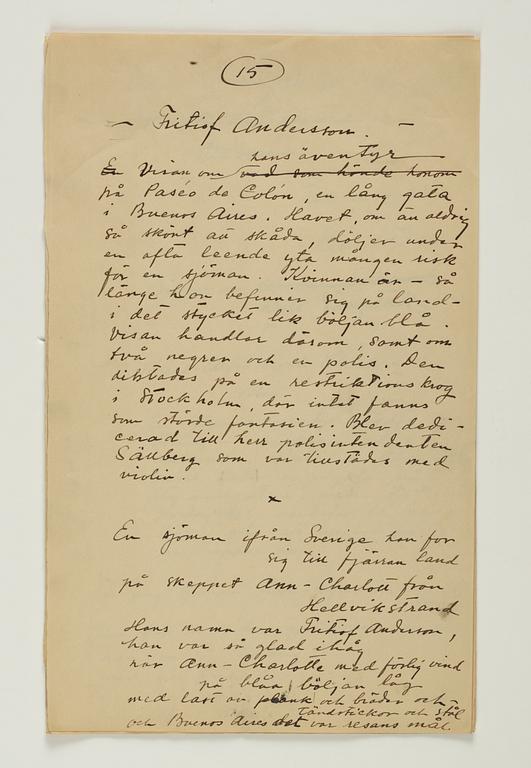 15
— Fritiof Andersson. —
hans äventyr
En Visan om vad som hände honom
på Paséo de Colón, en lång gata
i Buenos Aires. Havet, om än aldrig
så skönt att skåda, döljer under
en ofta leende yta mången risk
för en sjöman. Kvinnan är — så
länge hon befinner sig på land —
i det stycket lik böljan blå.
Visan handlar därom, samt om
två negrer och en polis. Den
diktades på en restriktionskrog
i Stockholm, där intet fanns
som störde fantasien. Blev dedi-
cerad till herr polisintendenten
Sällberg som var tillstädes med
violin.
x
En sjöman ifrån Sverige han for
sig till fjärran land
på skeppet Ann-Charlott från
Hellvikstrand
Hans namn var Fritiof Anderson,
han var så glad ihåg
när Ann-Charlotte med förlig vind
på blåa böljan låg
med last av plank och bräder och
tändstickor och stål
och Buenos Aires det var resans mål.